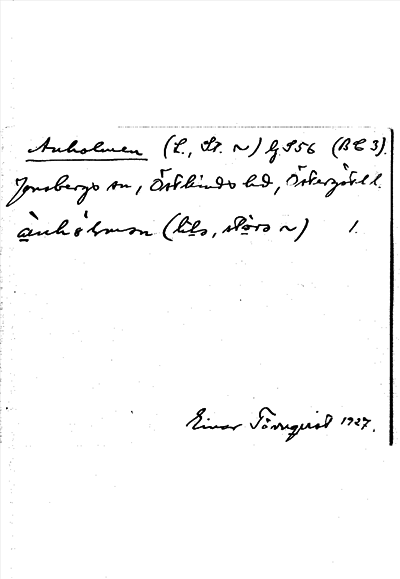 Anholmen (L., St. ~) G S56 (BC 3).
Jonsbergs sn, Östkinds hd, Östergötl l.
ànhólmen (lila, stòra ~) 1.
Einar Törnqvist 1927.